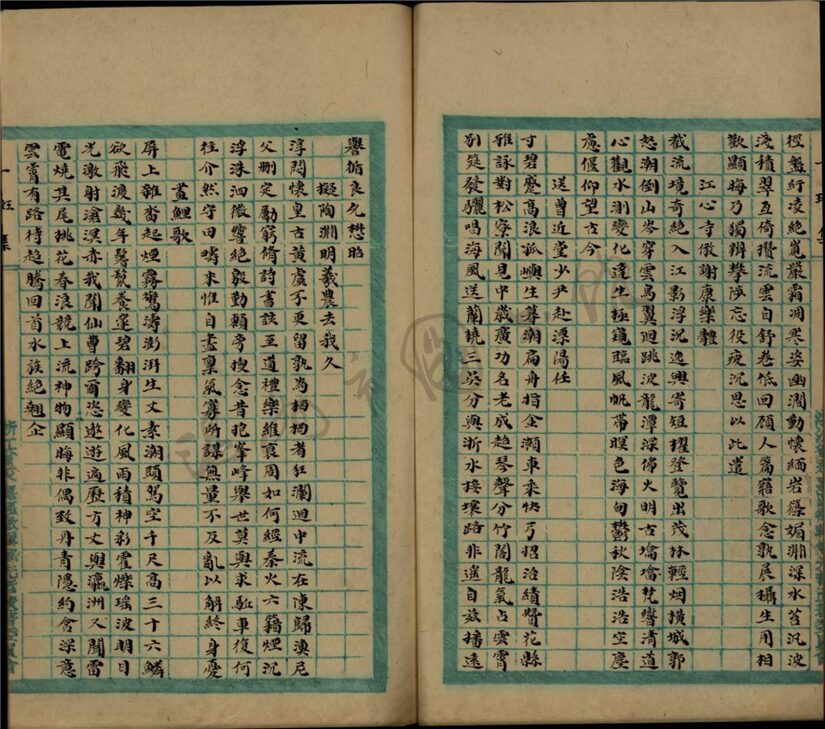 徑盤紆凌絶嵬嚴霜凋寒姿幽澗動懷緬岩篠媚淵深水苔汎波
淺積翠互倚攢流雲自舒卷低回碩人薖寤歌念孰展攝生用相
歡顯晦乃獨辨攀陟忘役疲沉思以此遣
江心寺倣謝康樂體
截流境奇絶入江影浮沉逸興寄短櫂登覽出茂林輕烟橫城郭
怒潮倒山岑穿雲鳥翼迴跳波龍潭深佛火明古壖梵響清道
心觀水測變化達生極窺臨風帆帶暝色海甸鬱秋陰浩浩空塵
慮偃仰望古今
送曹近堂少尹赴溧陽任
寸碧蹙高浪孤嶼生暮潮扁舟指金瀨車乘快弓招治績贊花縣
雅詠對松寮聞見中歲廣功名老成超琴聲分竹閣龍氣占雲霄
別筵發驪唱海風送蘭橈三吳分與浙水接壤路非遙自茲播遠
譽循良允懋昭
擬陶淵明羲農去我久
淳悶懷皇古黃虞不更留孰為栖栖者狂瀾迴中流在陳歸澳尼
父刪定勵窮脩詩書談至道禮樂維衰周如何經秦火六籍煙沉
浮洙泗微響絶殷勤願旁搜念昔抱峯峰舉世莫與求驅車復何
往介然守田疇來惟自盡稟氣毒所謀無量不及亂以解終身憂
畫鯉歌
屏上雜畓起煙霧驚濤澎湃生丈素潮頭罵空千尺高三十六鱗
欲飛渡幾年鬐鬣養蓬碧翻身變化風雨積神彩霍爍瑤波明目
光激射滄溟赤我聞仙曹跨爾恣遊遨適歷方丈與瀛洲又聞雷
電燒其尾桃花春浪競上流神物顯晦非偶致丹青隱約含深意
雲霄有路待超騰回首水族絶翹企